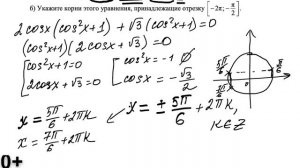 б) Укажите корни этого уравнения, принадлежащие отрезку [-2π; -π/2].
2cosx(cos²x+1) + √3(cos²x+1)=0
(cos²x+1)(2cosx+√3)=0
[cos²x+1=0 [cos²x=-1 ∅
2cosx+√3=0 cosx=-√3/2
x=5π/6+2πk
x=7π/6+2πk
x=±5π/6+2πk,
k∈Z
5π/6
5π/6
7π/6
0
0+